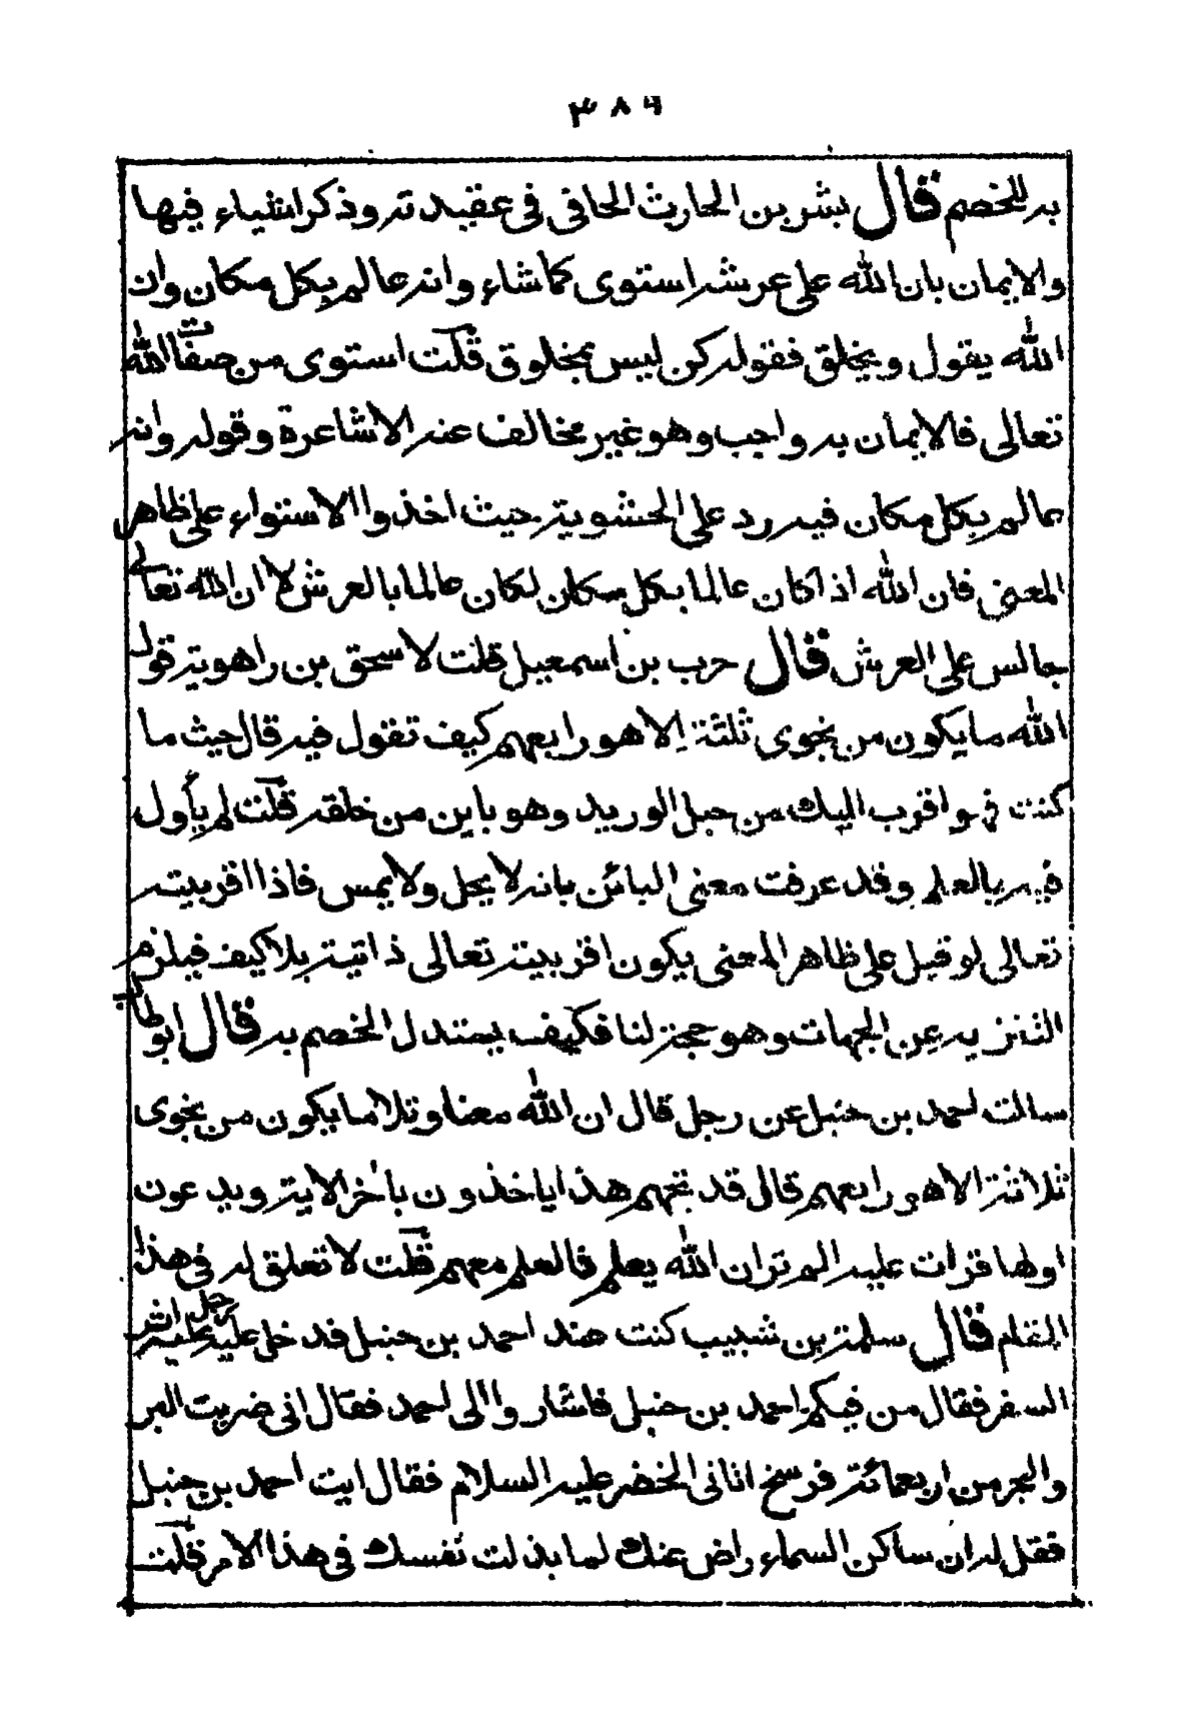 ٣٨٩
به للخصم قال بشر بن الحارث الحافى فى عقيدته وذكر اشياء فيها
والايمان بان الله على عرشه استوى كما شاء وانه عالم بكل مكان وان
الله يقول ويخلق فقوله كن ليس بمخلوق قلت استوى من صفات الله
تعالى فالايمان به واجب وهو غير مخالف عند الاشاعرة وقوله وانه
عالم بكل مكان فيه رد على الحشوية حيث اخذوا الاستواء على ظاهر
المعنى فان الله اذا كان عالما بكل مكان لكان عالما بالعرش لا ان الله تعالى
جالس على العرش قال حرب بن اسمعيل قلت لاسحق بن راهويه قول
الله ما يكون من نجوى ثلثة الا هو رابعهم كيف تقول فيه قال حيث ما
كنت فهو اقرب اليك من حبل الوريد وهو باين من خلقه قلت لم يأول
فيه بالعلم وقد عرفت معنى البائن بانه لا يحل ولا يمس فاذا اقربيته
تعالى لو قيل على ظاهر المعنى يكون اقربيته تعالى ذاتية بلا كيف فيلزم
التنزيه عن الجهات وهو حجة لنا فكيف يستدل الخصم به قال ابو طالب
سالت احمد بن حنبل عن رجل قال ان الله معنا وتلا ما يكون من نجوى
ثلاثة الا هو رابعهم قال قد تجهم هذا ياخذون باخر الاية ويدعون
اولها قرات عليه الم تر ان الله يعلم فالعلم معهم قلت لا تعلق له فى هذا
المقام قال سلمة بن شبيب كنت عند احمد بن حنبل فدخل عليه رجل عليه اثر
السفر فقال من فيكم احمد بن حنبل فاشاروا الى احمد فقال انى ضربت البر
والبحر من اربعمائة فرسخ اتانى الخضر عليه السلام فقال ايت احمد بن حنبل
فقل له ان ساكن السماء راض عنك لما بذلت نفسك فى هذا الامر قلت